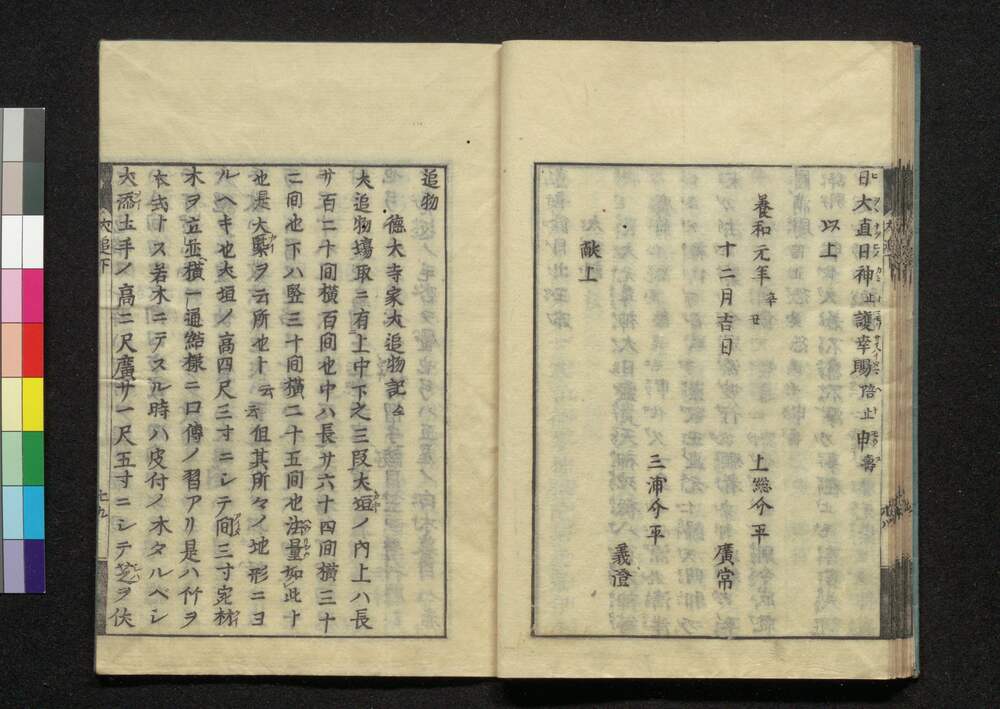 日大直日神止護幸賜倍止申壽
以上
養和元年 辛丑
十二月吉日
上総介平
廣常
三浦介平
義澄
献上
追物
徳大寺家犬追物記ニ云
犬追物場取ニ有上中下之三段犬垣ノ内上ハ長
サ百二十間横百間也中ハ長サ六十四間横三十
二間也下ハ竪三十間横二十五間也法量如此ト
也是大槩ヲ云所也ト云云但其所々ノ地形ニヨ
ルヘキ也犬垣ノ高四尺三寸ニシテ間三寸宛林
木ヲ立並横一通結様ニ口傳ノ習アリ是ハ竹ヲ
本式ナス若木ニテスル時ハ皮付ノ木タルベシ
犬添土手ノ高二尺廣サ一尺五寸ニシテ芝ヲ伏
犬追下
七九